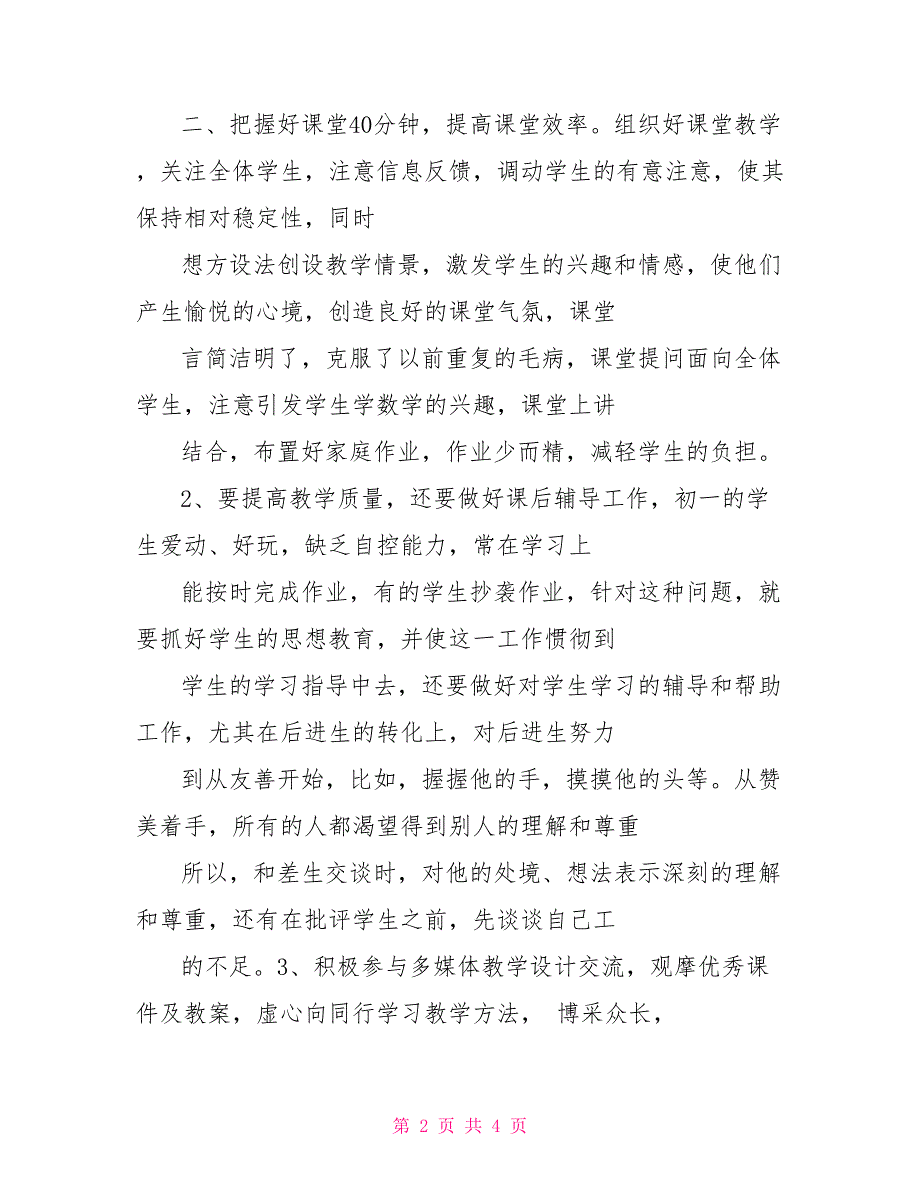 二、把握好课堂40分钟，提高课堂效率。组织好课堂教学
，关注全体学生，注意信息反馈，调动学生的有意注意，使其
保持相对稳定性，同时
想方设法创设教学情景，激发学生的兴趣和情感，使他们
产生愉悦的心境，创造良好的课堂气氛，课堂
言简洁明了，克服了以前重复的毛病，课堂提问面向全体
学生，注意引发学生学数学的兴趣，课堂上讲
结合，布置好家庭作业，作业少而精，减轻学生的负担。
2、要提高教学质量，还要做好课后辅导工作，初一的学
生爱动、好玩，缺乏自控能力，常在学习上
能按时完成作业，有的学生抄袭作业，针对这种问题，就
要抓好学生的思想教育，并使这一工作惯彻到
学生的学习指导中去，还要做好对学生学习的辅导和帮助
工作，尤其在后进生的转化上，对后进生努力
到从友善开始，比如，握握他的手，摸摸他的头等。从赞
美着手，所有的人都渴望得到别人的理解和尊重
所以，和差生交谈时，对他的处境、想法表示深刻的理解
和尊重，还有在批评学生之前，先谈谈自己工
的不足。3、积极参与多媒体教学设计交流，观摩优秀课
件及教案，虚心向同行学习教学方法， 博采众长，
第 2 页 共 4 页